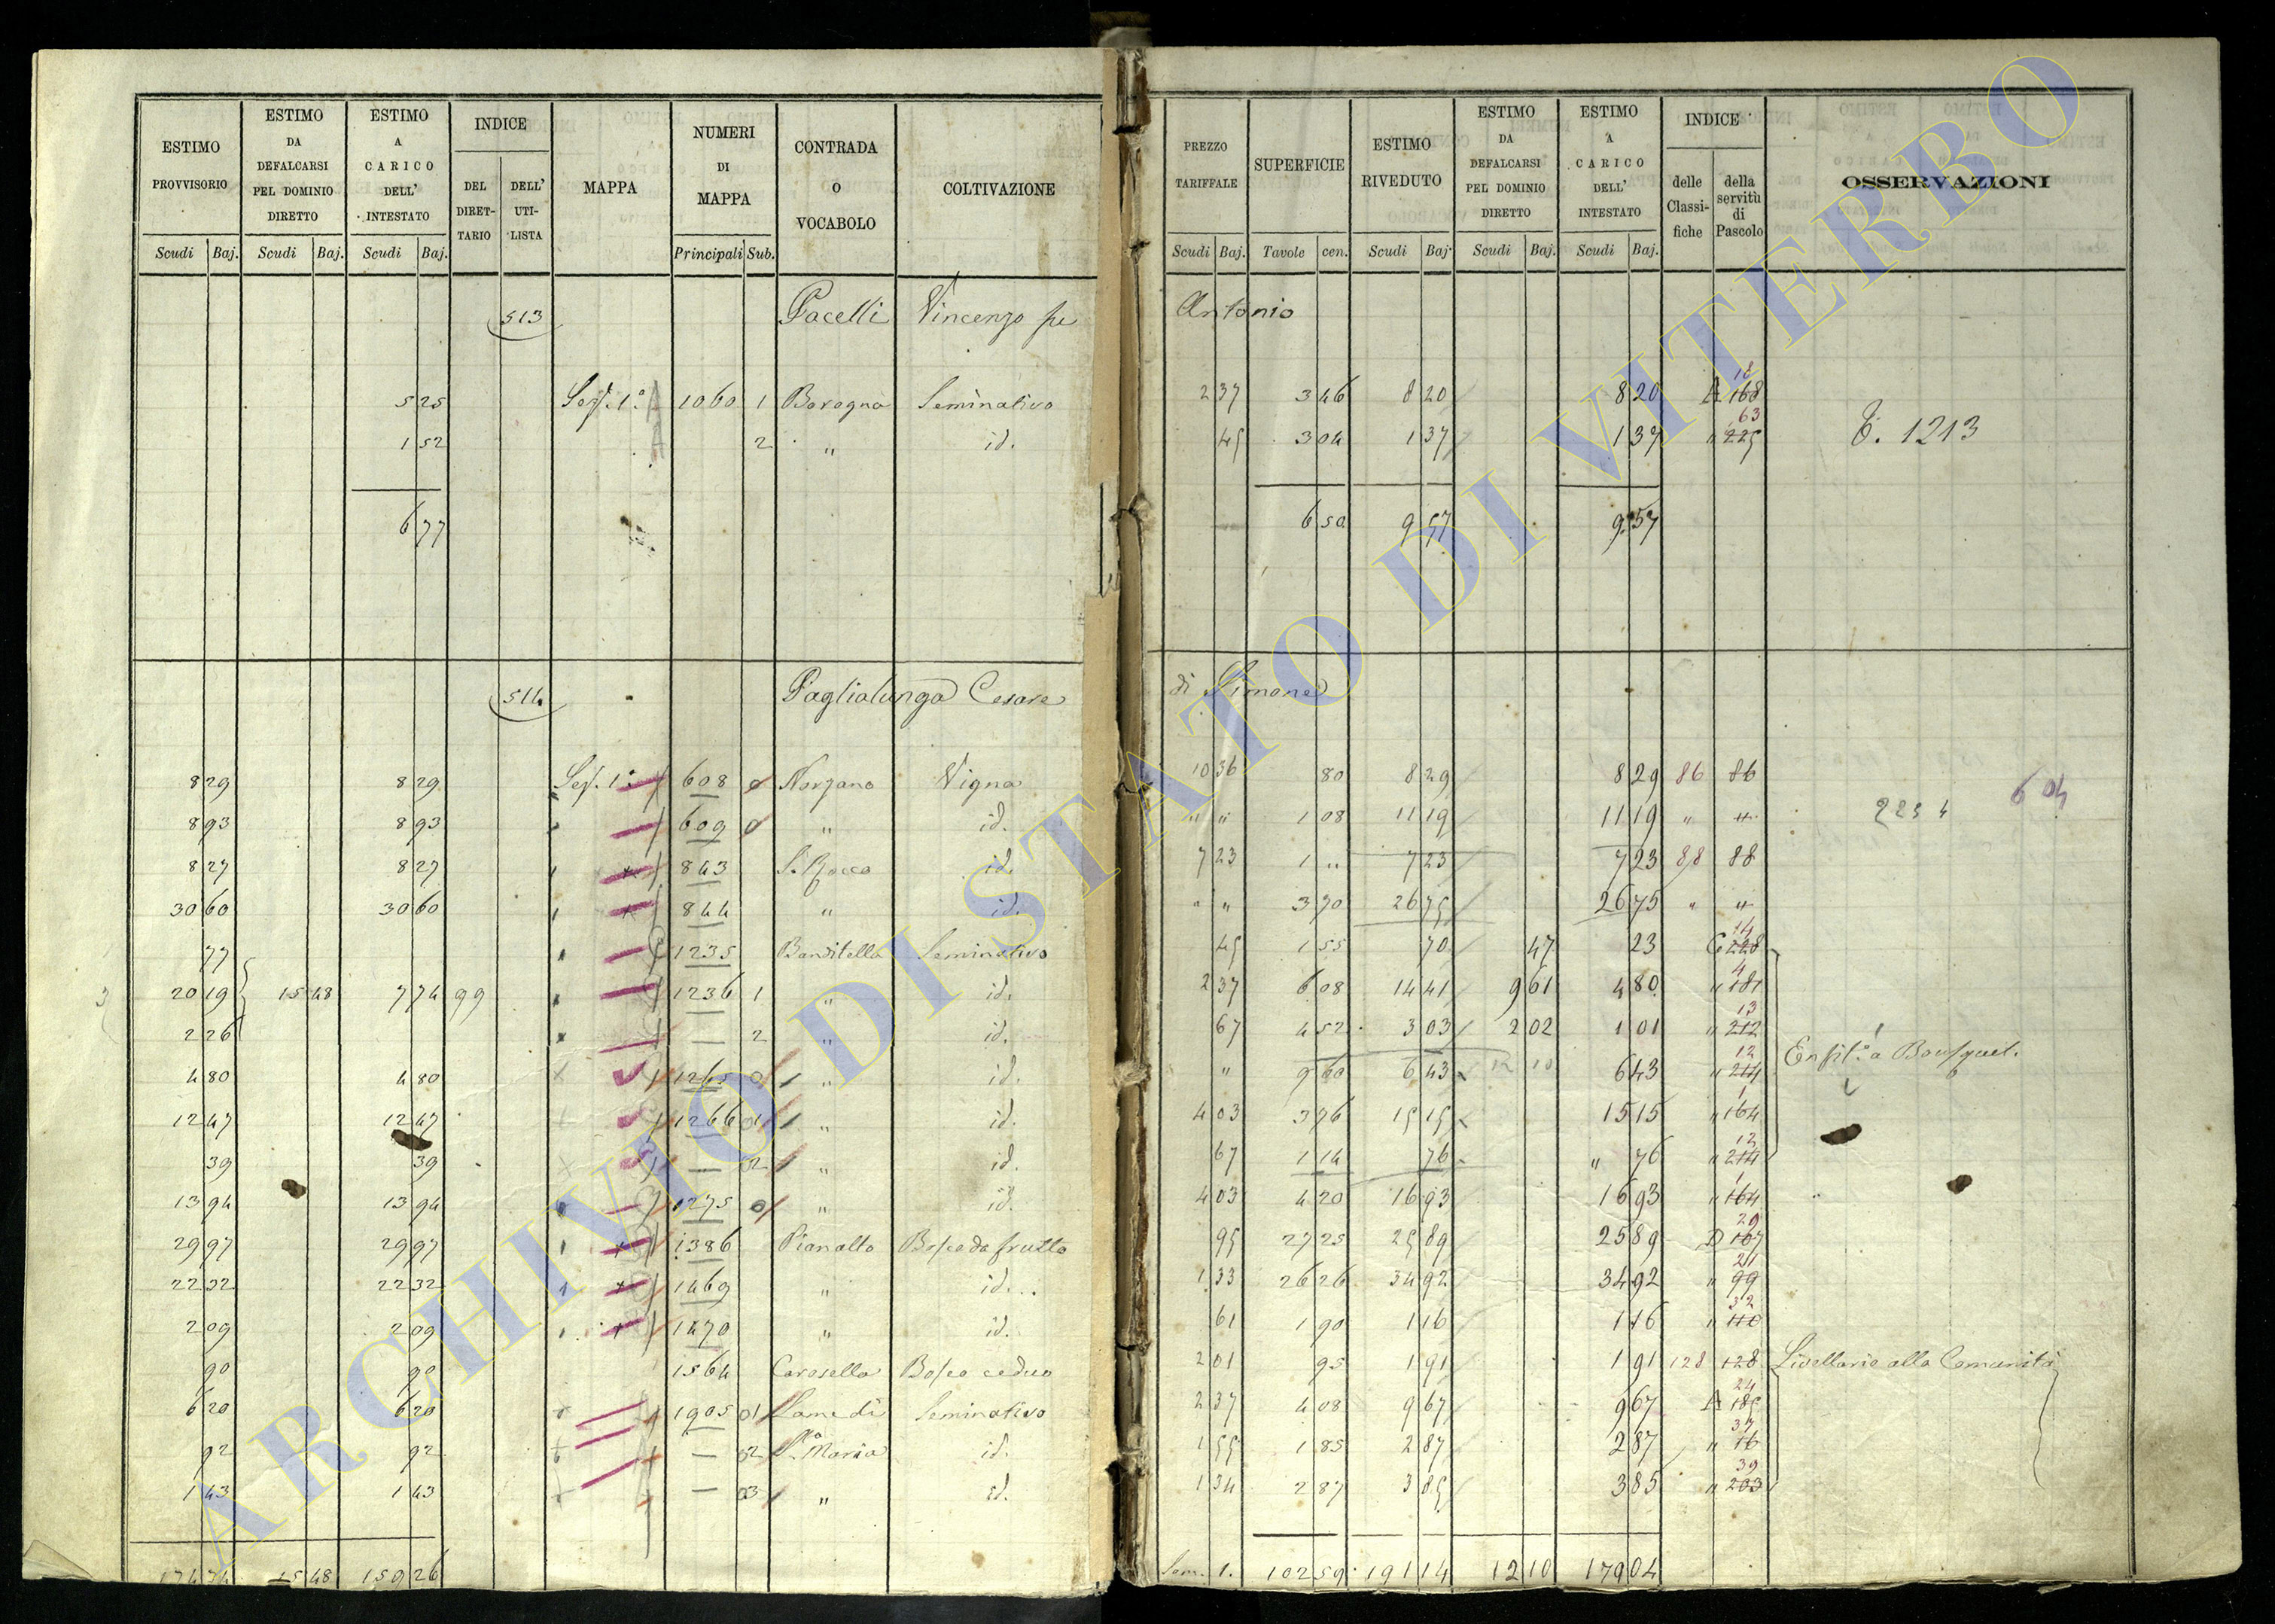 ESTIMO PROVVISORIO | ESTIMO DA DEFALCARSI PEL DOMINIO DIRETTO | ESTIMO A CARICO DELL' INTESTATO | INDICE | MAPPA | NUMERI DI MAPPA | CONTRADA O VOCABOLO | COLTIVAZIONE | PREZZO TARIFFALE | SUPERFICIE | ESTIMO RIVEDUTO | ESTIMO DA DEFALCARSI PEL DOMINIO DIRETTO | ESTIMO A CARICO DELL' INTESTATO | INDICE | OSSERVAZIONI
DEL DIRET-TARIO | DELL' UTI-LISTA | delle Classi-fiche | della servitù di Pascolo
Scudi | Baj. | Scudi | Baj. | Scudi | Baj. | Principali | Sub. | Scudi | Baj. | Tavole | cen. | Scudi | Baj. | Scudi | Baj. | Scudi | Baj.
513 Pacelli Vincenzo fu Antonio
5 25 | Sez. 1ª A | 1060 | 1 | Seminativo | 2 37 | 3 46 | 8 20 | 8 20 | A 168 18
1 52 | A | 2 | " | id. | 45 | 3 04 | 1 37 | 1 37 | " 225 63 | 1213
6 77 | 6 50 | 9 57 | 9 57
514 Paglialunga Cesare di Simone
8 29 | 8 29 | Sez. 1ª | 608 | 0 | Norzano | Vigna | 10 36 | 80 | 8 29 | 8 29 | 86 | 86
8 93 | 8 93 | 609 | 0 | " | id. | " " | 1 08 | 11 19 | 11 19 | " | " | 2234 | 604
8 27 | 8 27 | 843 | S. Rocco | id. | 7 23 | 1 " | 7 23 | 7 23 | 88 | 88
30 60 | 30 60 | 844 | " | id. | " " | 3 70 | 26 75 | 26 75 | " | "
77 | 1235 | Banditella | Seminativo | 45 | 1 55 | 70 | 47 | 23 | C 228 14
20 19 | 15 48 | 7 74 | 99 | 1236 | 1 | " | id. | 2 37 | 6 08 | 14 41 | 9 61 | 4 80 | " 181 4
2 26 | — | 2 | " | id. | 67 | 4 52 | 3 03 | 2 02 | 1 01 | " 212 13
4 80 | 4 80 | 1265 | 0 | " | id. | " | 9 60 | 6 43 | 12 10 | 6 43 | " 214 12 | Enfit. a Bousquet.
12 47 | 12 47 | 1266 | 1 | " | id. | 4 03 | 3 76 | 15 15 | 15 15 | " 164 1
39 | 39 | — | 2 | " | id. | 67 | 1 14 | 76 | " 76 | " 214 12
13 94 | 13 94 | 1275 | 0 | " | id. | 4 03 | 4 20 | 16 93 | 16 93 | " 164 1
29 97 | 29 97 | 1386 | Pianalto | Bosco da frutto | 95 | 27 25 | 25 89 | 25 89 | D 107 29
22 32 | 22 32 | 1469 | " | id. | 1 33 | 26 26 | 34 92 | 34 92 | " 99 21
2 09 | 2 09 | 1470 | " | id. | 61 | 1 90 | 1 16 | 1 16 | " 110 32
90 | 90 | 1564 | Carosella | Bosco ceduo | 2 01 | 95 | 1 91 | 1 91 | 128 | 128 | Livellario alla Comunità
6 20 | 6 20 | 1905 | 1 | Lame di | Seminativo | 2 37 | 4 08 | 9 67 | 9 67 | A 185 24
92 | 92 | — | 2 | S.ta Maria | id. | 1 55 | 1 85 | 2 87 | 2 87 | " 16 37
1 43 | 1 43 | — | 3 | " | id. | 1 34 | 2 87 | 3 85 | 3 85 | " 203 39
174 74 | 15 48 | 159 26 | Som. 1. | 102 59 | 191 14 | 12 10 | 179 04
ARCHIVIO DI STATO DI VITERBO